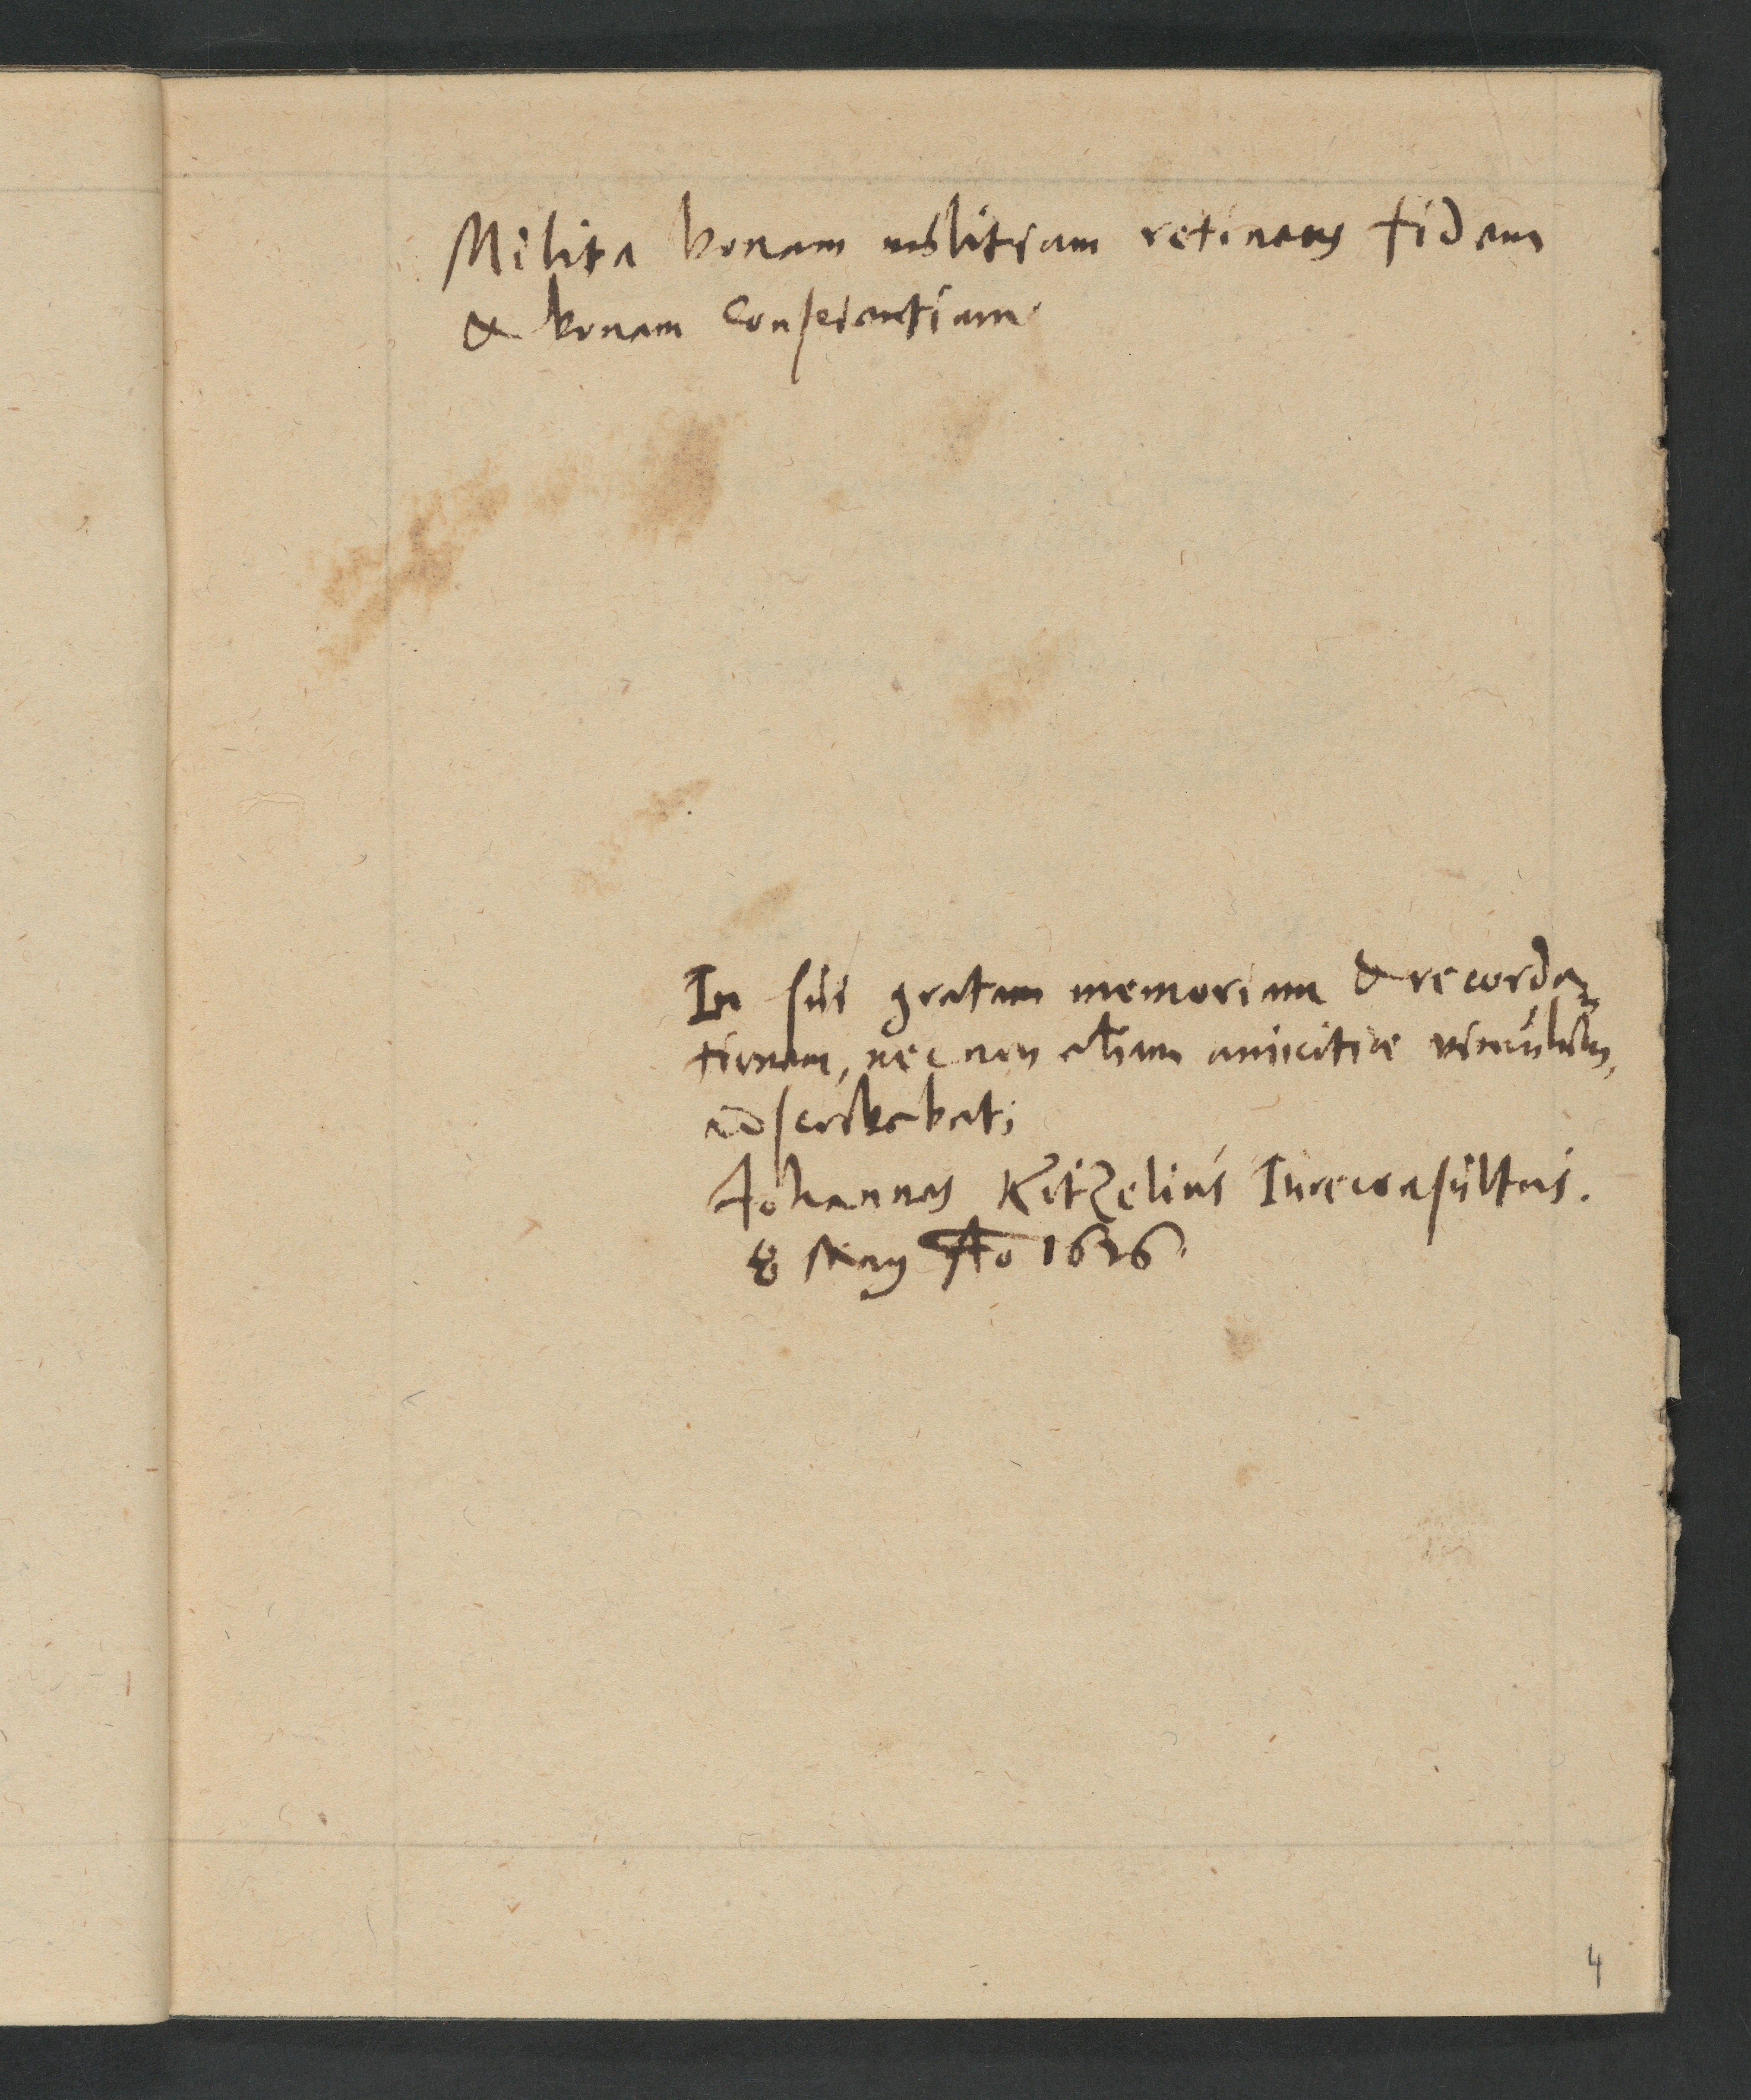 Milita bonam militiam retinens fidem
& bonam conscientiam.
In sui gratam memoriam & recorda
tionem, nec non etiam amicitiæ vinculum,
adscribebat;
Johannes Kitzelius Iureconsultus.
8 May Ao 1626.
4